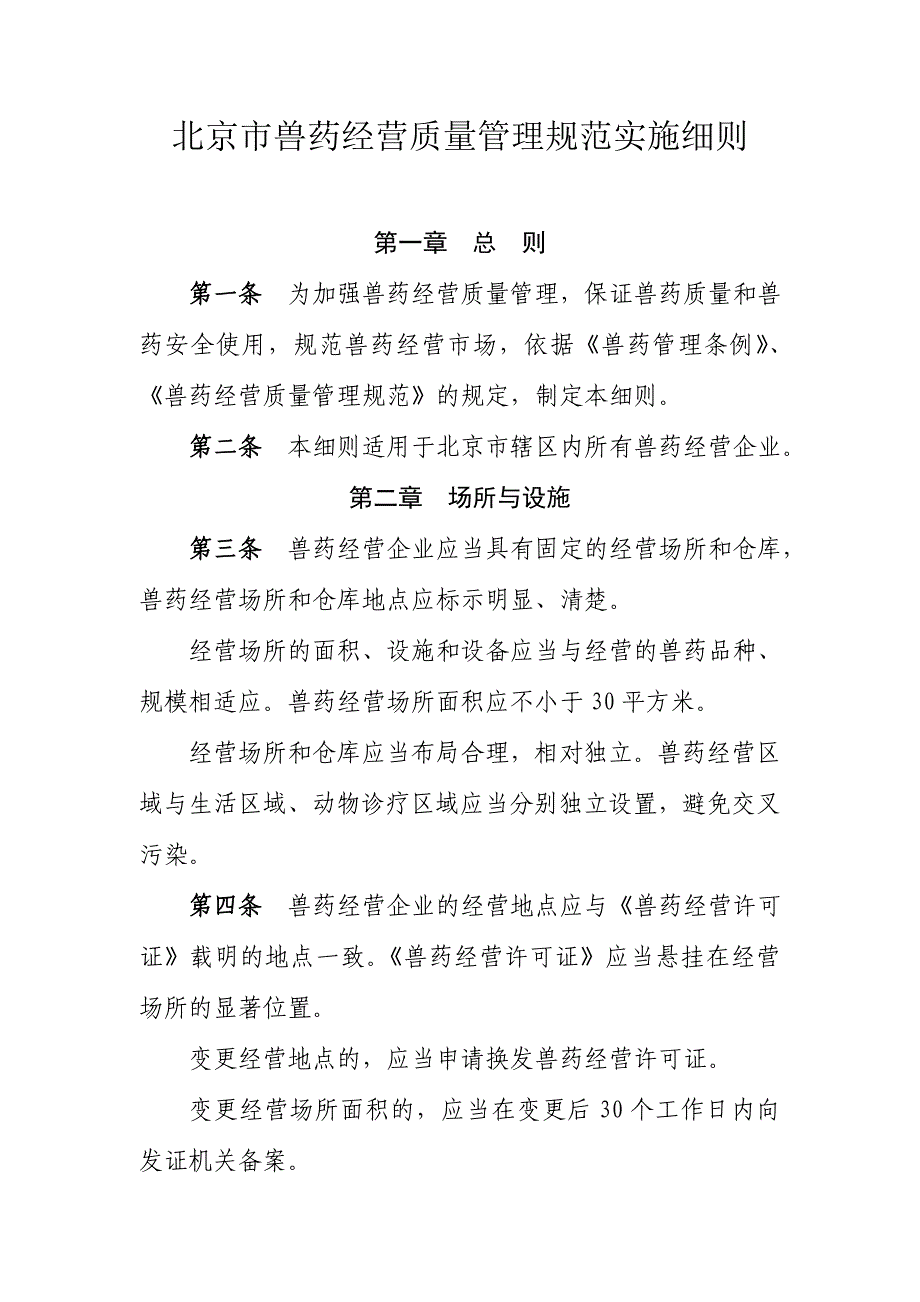 北京市兽药经营质量管理规范实施细则
第一章 总 则
第一条 为加强兽药经营质量管理，保证兽药质量和兽
药安全使用，规范兽药经营市场，依据《兽药管理条例》、
《兽药经营质量管理规范》的规定，制定本细则。
第二条 本细则适用于北京市辖区内所有兽药经营企业。
第二章 场所与设施
第三条 兽药经营企业应当具有固定的经营场所和仓库，
兽药经营场所和仓库地点应标示明显、清楚。
经营场所的面积、设施和设备应当与经营的兽药品种、
规模相适应。兽药经营场所面积应不小于30平方米。
经营场所和仓库应当布局合理，相对独立。兽药经营区
域与生活区域、动物诊疗区域应当分别独立设置，避免交叉
污染。
第四条 兽药经营企业的经营地点应与《兽药经营许可
证》载明的地点一致。《兽药经营许可证》应当悬挂在经营
场所的显著位置。
变更经营地点的，应当申请换发兽药经营许可证。
变更经营场所面积的，应当在变更后30个工作日内向
发证机关备案。